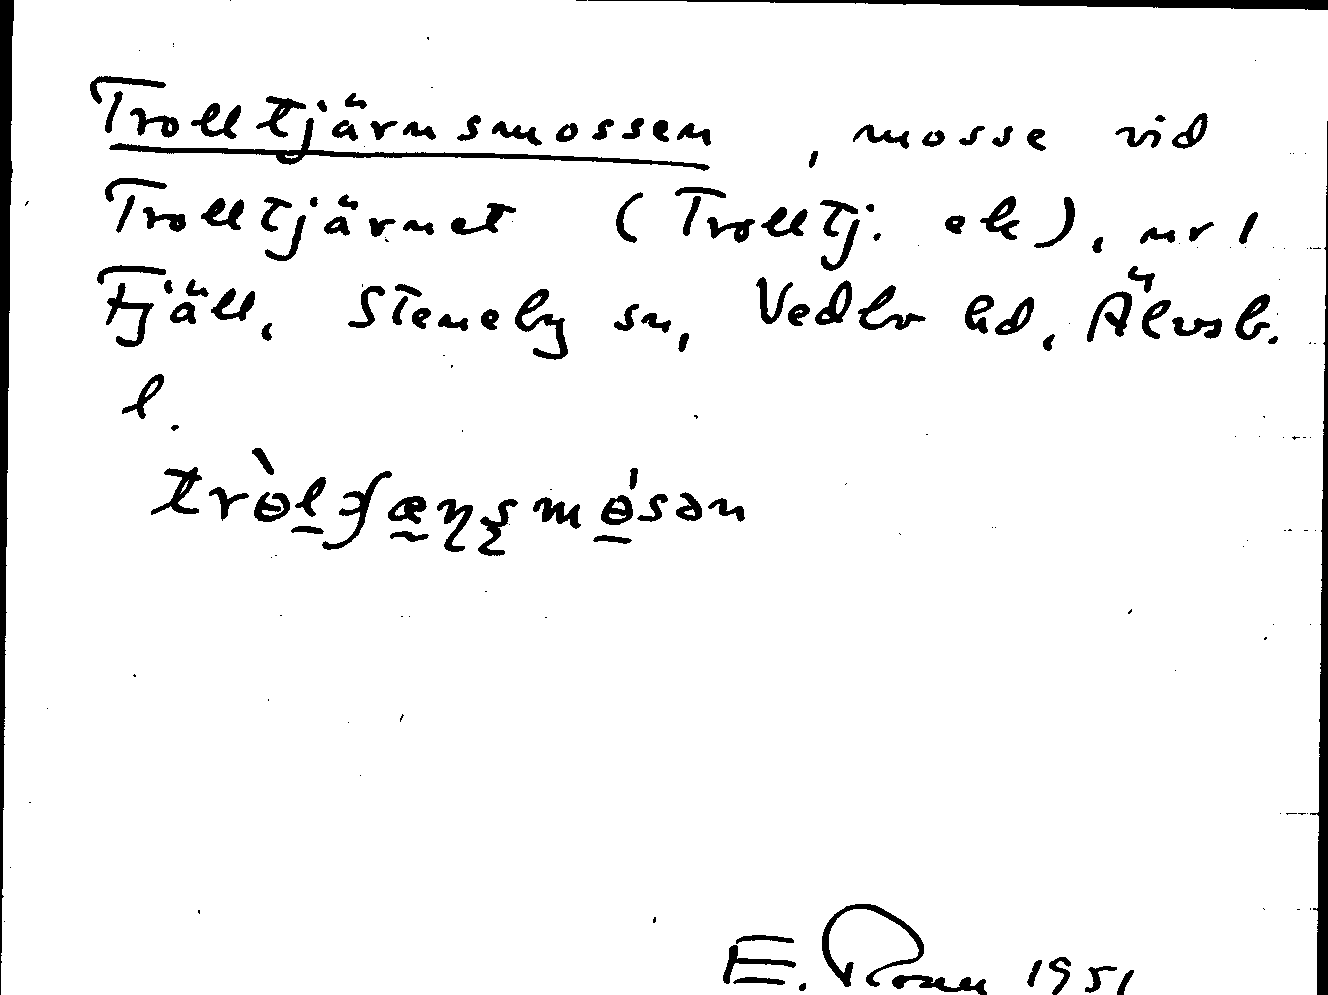 Trolltjärnsmossen, mosse vid
Trolltjärnet (Trolltj. ek), nr 1
Fjäll, Steneby sn, Vedbo hd, Älvsb.
l.
E. 1951